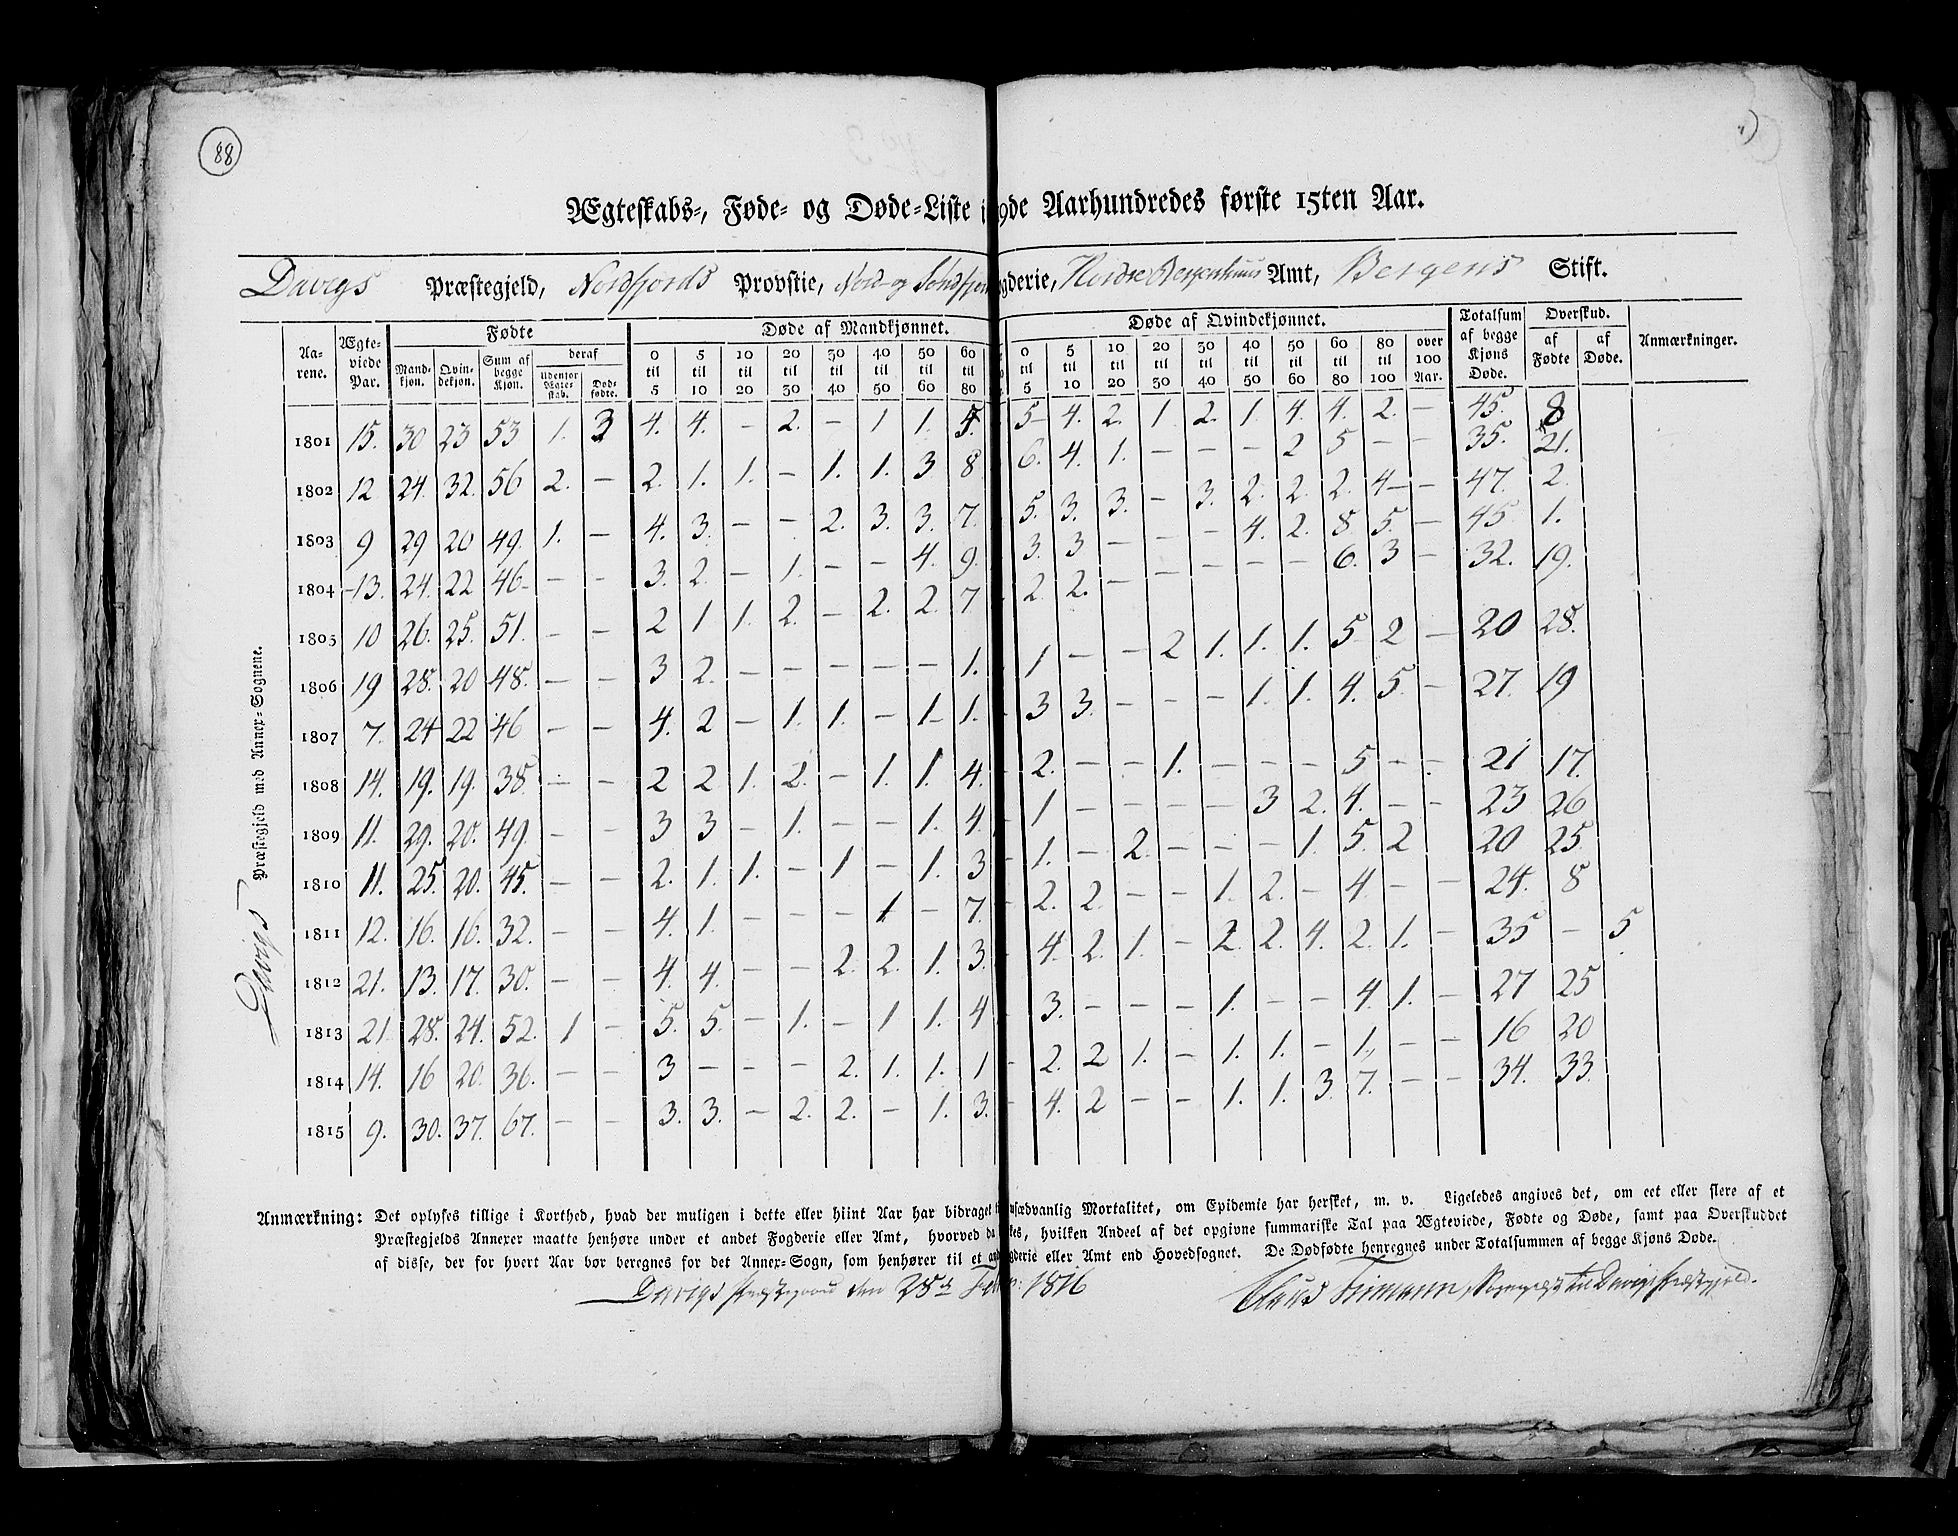 88
Ægteskabs-, Føde- og Døde-Liste i 19de Aarhundredes første 15ten Aar.
Davigs Præstegjeld, Nordfjords Provstie, Nord- og Søndfjords Fogderie, Nordre Bergenhuus Amt, Bergens Stift.
Aarene. Ægteviede Par. Fødte Døde af Mandkjønnet. Døde af Qvindekjønnet. Totalsum af begge Kjøns Døde. Overskud. Anmærkninger.
Mandkjøn. Qvindekjøn. Sum af begge Kjøn. deraf af Fødte af Døde.
Udenfor Ægteskab. Dødfødte.
0 til 5 5 til 10 10 til 20 20 til 30 30 til 40 40 til 50 50 til 60 60 til 80 0 til 5 5 til 10 10 til 20 20 til 30 30 til 40 40 til 50 50 til 60 60 til 80 80 til 100 over 100 Aar.
1801 15. 30 23 53 1. 3 4. 4. — 2. — 1 1. 5. 5 4. 2. 1 2. 1. 4. 4. 2. — 45. 8
1802 12 24. 32. 56 2. — 2. 1. 1. — 1. 1. 3 8 6. 4. 1. — — — 2 5 — — 35. 21.
1803 9 29 20 49. 1. — 4. 3. — — 2. 3. 3. 7. 5. 3. 3. — 3. 2. 2. 2. 4 — 47. 2.
1804 13. 24. 22 46 — — 3. 2. — 1. — — 4. 9. 3. 3 — — — 4. 2. 8 5. — 45. 1.
1805 10 26. 25. 51. — — 2 1 1. 2. — 2. 2. 7 2 2. — — — — — 6. 3 — 32. 19.
1806 19 28. 20 48. — — 3 2. — — — — — 1. 1 — — 2 1. 1. 1. 5 2 — 20 28.
1807 7. 24 22 46 — — 4. 2 — 1. 1. — 1 1. 3 3. — — — 1. 1. 4. 5. — 27. 19
1808 14. 19. 19. 38. — — 2 2 1. 2. — 1. 1. 4. 2. — — 1. — — — 5 — — 21 17.
1809 11. 29. 20. 49. — — 3 3 — 1. — — 1. 4. 1 — — — — 3 2. 4. — — 23 26
1810 11. 25. 20. 45. — — 2. 1. 1. — 1 — 1. 3 1. — 2. — — — 1. 5. 2 20 25.
1811 12. 16. 16. 32. — — 4. 1. — — — 1 — 7. 2. 2. — — 1. 2. — 4 — — 24. 8
1812 21. 13. 17. 30. — — 4. 4. — — 2. 2. 1. 3. 4. 2. 1. — 2. 2. 4. 2. 1. — 35 — 5
1813 21 28. 24. 52. 1 — 5. 5. — 1. — 1 1. 4 3. — — — 1. — — 4. 1. — 27 25
1814 14. 16 20. 36. — — 3 — — — 2. 1. 1. 1 2. 2 1. — 1. 1. — 1. — — 16 20
1815 9. 30. 37. 67. — — 3. 3. — 2. 2. — 1. 3. 4. 2 — — 1. 1. 3 7. — — 34. 33.
Davigs Præstegjeld med Annex-Sognene.
Anmærkning: Det oplyses tillige i Korthed, hvad der muligen i dette eller hiint Aar har bidraget til usædvanlig Mortalitet, om Epidemie har hersket, m. v. Ligeledes angives det, om eet eller flere af et
Præstegjelds Annexer maatte henhøre under et andet Fogderie eller Amt, hvorved da hvilken Andeel af det opgivne summariske Tal paa Ægteviede, Fødte og Døde, samt paa Overskuddet
af disse, der for hvert Aar bør beregnes for det Annex-Sogn, som henhører til et andet Fogderie eller Amt end Hovedsognet. De Dødfødte henregnes under Totalsummen af begge Kjøns Døde.
Davigs Præstegaard den 28de Febr. 1816
Claus Frimann, Sognepræst til Davigs Præstegjeld.